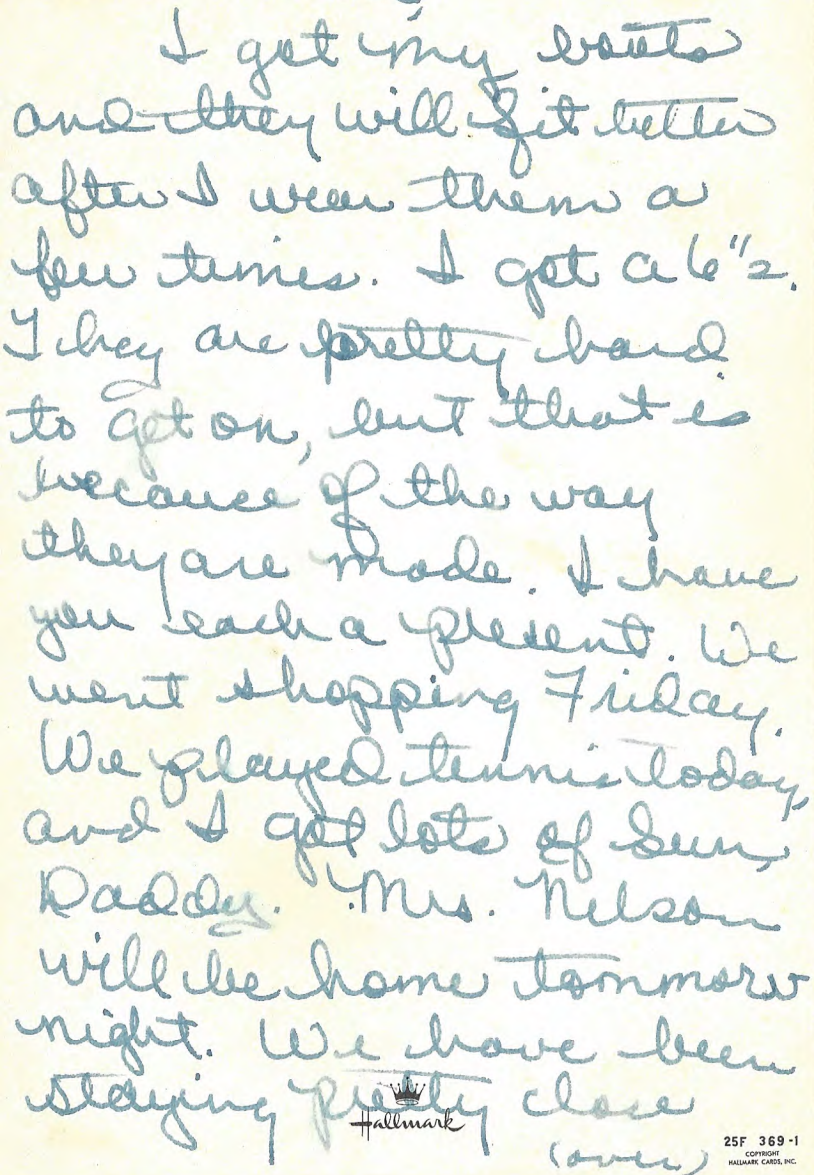 I got my boots
and they will fit better
after I wear them a
few times. I got a 6 1/2.
They are pretty hard
to get on, but that is
because of the way
they are made. I have
you each a present. We
went shopping Friday.
We played tennis today,
and I got lots of sun,
Daddy. Mrs. Nelson
will be home tommorw
night. We have been
staying pretty close
Hallmark
(over)
25F 369-1
COPYRIGHT
HALLMARK CARDS, INC.